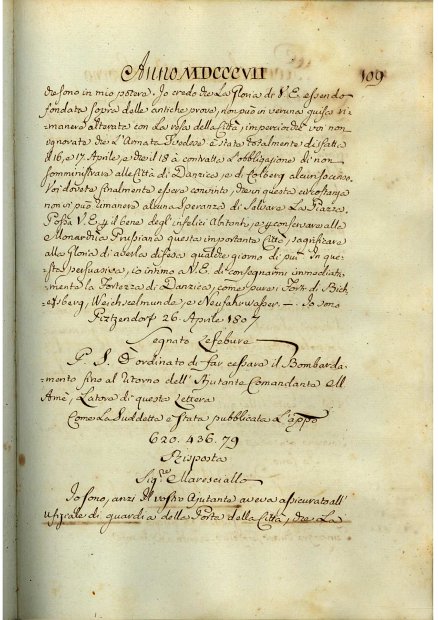 Anno MDCCCVII
109
che sono in mio potere. Io credo che La Gloria di V. E. essendo
fondata sopra delle antiche prove, non può in veruna guisa ri-
manere alterata con La resa della Città, imperciocchè voi non
ignorate che L'Armata Svedese è stata totalmente disfatta
il 16, e 17 Aprile, e che il 18 à contratta L'obbligazione di non
somministrare alle Città di Danzica, e di Colberg alcun soccorso.
Voi dovete finalmente essere convinto, che in questa circostanza
non vi può rimanere alcuna Speranza di Salvare La Piazza.
Possa V. E. il bene degl'infelici Abitanti, e conservare alla
Monarchia Prussiana questa importante Città, sagrificare
alla Gloria di averla difesa qualche giorno di più. In que-
sta persuasiva, io intimo A. V. E. di consegnarmi immediata-
mente la Fortezza di Danzica, come pure i Forti di Bisch-
efsberg, Weichselmunde, e Neufahrwasser. — Io sono
Pitzendorf 26. Aprile 1807
Segnato Lefebure
P. S. Ò ordinato di far cessare il Bombarda-
mento fino al ritorno dell'Ajutante Comandante
Amè, Latore di questa Lettera
Come La Suddetta è Stata pubblicata L'appo
620. 436. 79
Risposta
Sig.re Maresciallo
Io sono, anzi il vostro Ajutante aveva assicurato all'
Ufiziale di guardia della Porta della Città, che La